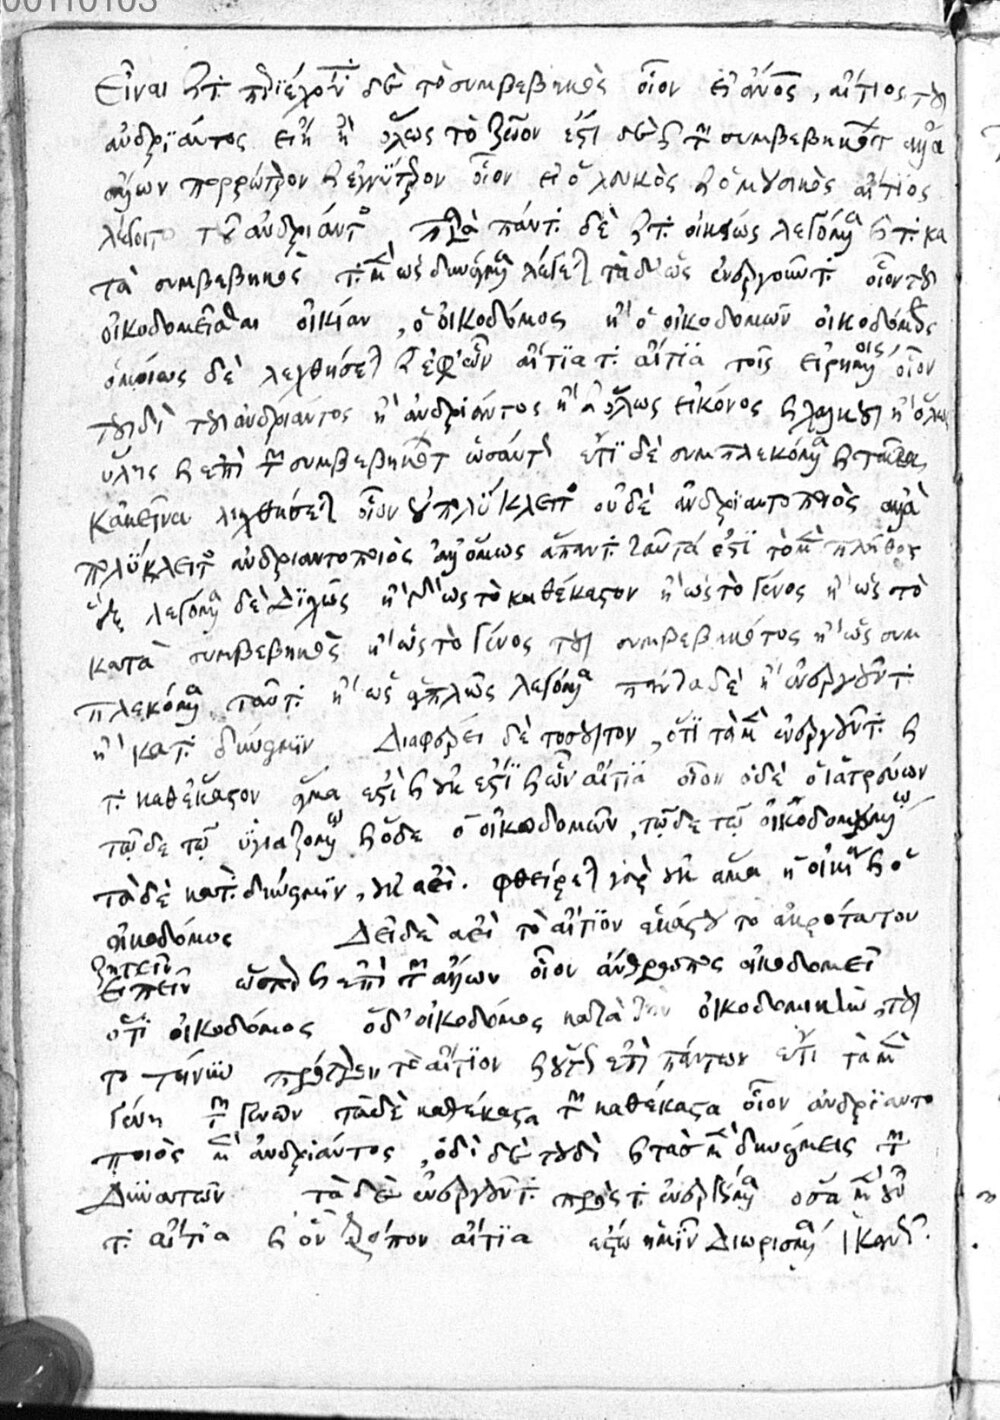 00110103
Εἶναι καὶ τὰ περιέχοντα δὲ τὸ συμβεβηκὸς οἷον εἰ ἄνος, αἴτιος τοῦ
ἀνδριάντος εἴη ἢ ὅλως τὸ ζῷον ἔστι δὲ καὶ τῶν συμβεβηκότων ἄλλα
ἄλλων πορρώτερον καὶ ἐγγύτερον οἷον εἰ ὁ λευκὸς καὶ ὁ μουσικὸς αἴτιος
λέγοιτο τοῦ ἀνδριάντος παρὰ πάντα δὲ καὶ τὰ οἰκείως λεγόμενα καὶ τὰ κα
τὰ συμβεβηκὸς τὰ μὲν ὡς δυνάμενα λέγεται τὰ δ' ὡς ἐνεργοῦντα οἷον τοῦ
οἰκοδομεῖσθαι οἰκίαν, ὁ οἰκοδόμος ἢ ὁ οἰκοδομῶν οἰκοδόμος
ὁμοίως δὲ λεχθήσεται καὶ ἐφ' ὧν αἴτια τὰ αἴτια τοῖς εἰρημένοις οἷον
τουδὶ τοῦ ἀνδριάντος ἢ ἀνδριάντος ἢ ὅλως εἰκόνος καὶ χαλκοῦ ἢ ὅλως
ὕλης καὶ ἐπὶ τῶν συμβεβηκότων ὡσαύτως ἔτι δὲ συμπλεκόμενα καὶ ταῦτα
κἀκεῖνα λεχθήσεται οἷον οὐ πολύκλειτος οὐδὲ ἀνδριαντοποιὸς ἀλλὰ
πολύκλειτος ἀνδριαντοποιὸς ἀλλ' ὅμως ἅπαντα ταῦτά ἐστι τὸ μὲν πλῆθος
ἕξ λεγόμενα δὲ διχῶς ἢ γὰρ ὡς τὸ καθέκαστον ἢ ὡς τὸ γένος ἢ ὡς τὸ
κατὰ συμβεβηκὸς ἢ ὡς τὸ γένος τοῦ συμβεβηκότος ἢ ὡς συμ
πλεκόμενα ταῦτα ἢ ὡς ἁπλῶς λεγόμενα πάντα δὲ ἢ ἐνεργοῦντα
ἢ κατὰ δύναμιν Διαφέρει δὲ τοσοῦτον, ὅτι τὰ μὲν ἐνεργοῦντα καὶ
τὰ καθέκαστον ἅμα ἐστὶ καὶ οὐκ ἔστι καὶ ὧν αἴτια οἷον ὁδὲ ὁ ἰατρεύων
τῷδε τῷ ὑγιαζομένῳ καὶ ὅδε ὁ οἰκοδομῶν, τῷδε τῷ οἰκοδομουμένῳ
τὰ δὲ κατὰ δύναμιν, οὐκ ἀεί. φθείρεται γὰρ οὐκ ἅμα ἡ οἰκία καὶ ὁ
οἰκοδόμος Δεῖ δὲ ἀεὶ τὸ αἴτιον ἑκάστου τὸ ἀκρότατον
ζητεῖν
εἰπεῖν ὥσπερ καὶ ἐπὶ τῶν ἄλλων οἷον ἄνθρωπος οἰκοδομεῖ
ὅτι οἰκοδόμος ὁ δ' οἰκοδόμος κατὰ τὴν οἰκοδομικὴν, τοῦ
το τοίνυν πρότερον τὸ αἴτιον καὶ οὕτως ἐπὶ πάντων ἔτι τὰ μὲν
γένη τῶν γενῶν τὰ δὲ καθέκαστα τῶν καθέκαστα οἷον ἀνδριαντο
ποιὸς μὲν ἀνδριάντος, ὁδὶ δὲ τουδὶ καὶ τὰς μὲν δυνάμεις τῶν
δυνατῶν τὰ δὲ ἐνεργοῦντα πρὸς τὰ ἐνεργούμενα ὅσα μὲν οὖν
τὰ αἴτια καὶ ὃν τρόπον αἴτια ἔστω ἡμῖν διωρισμένα ἱκανῶς.